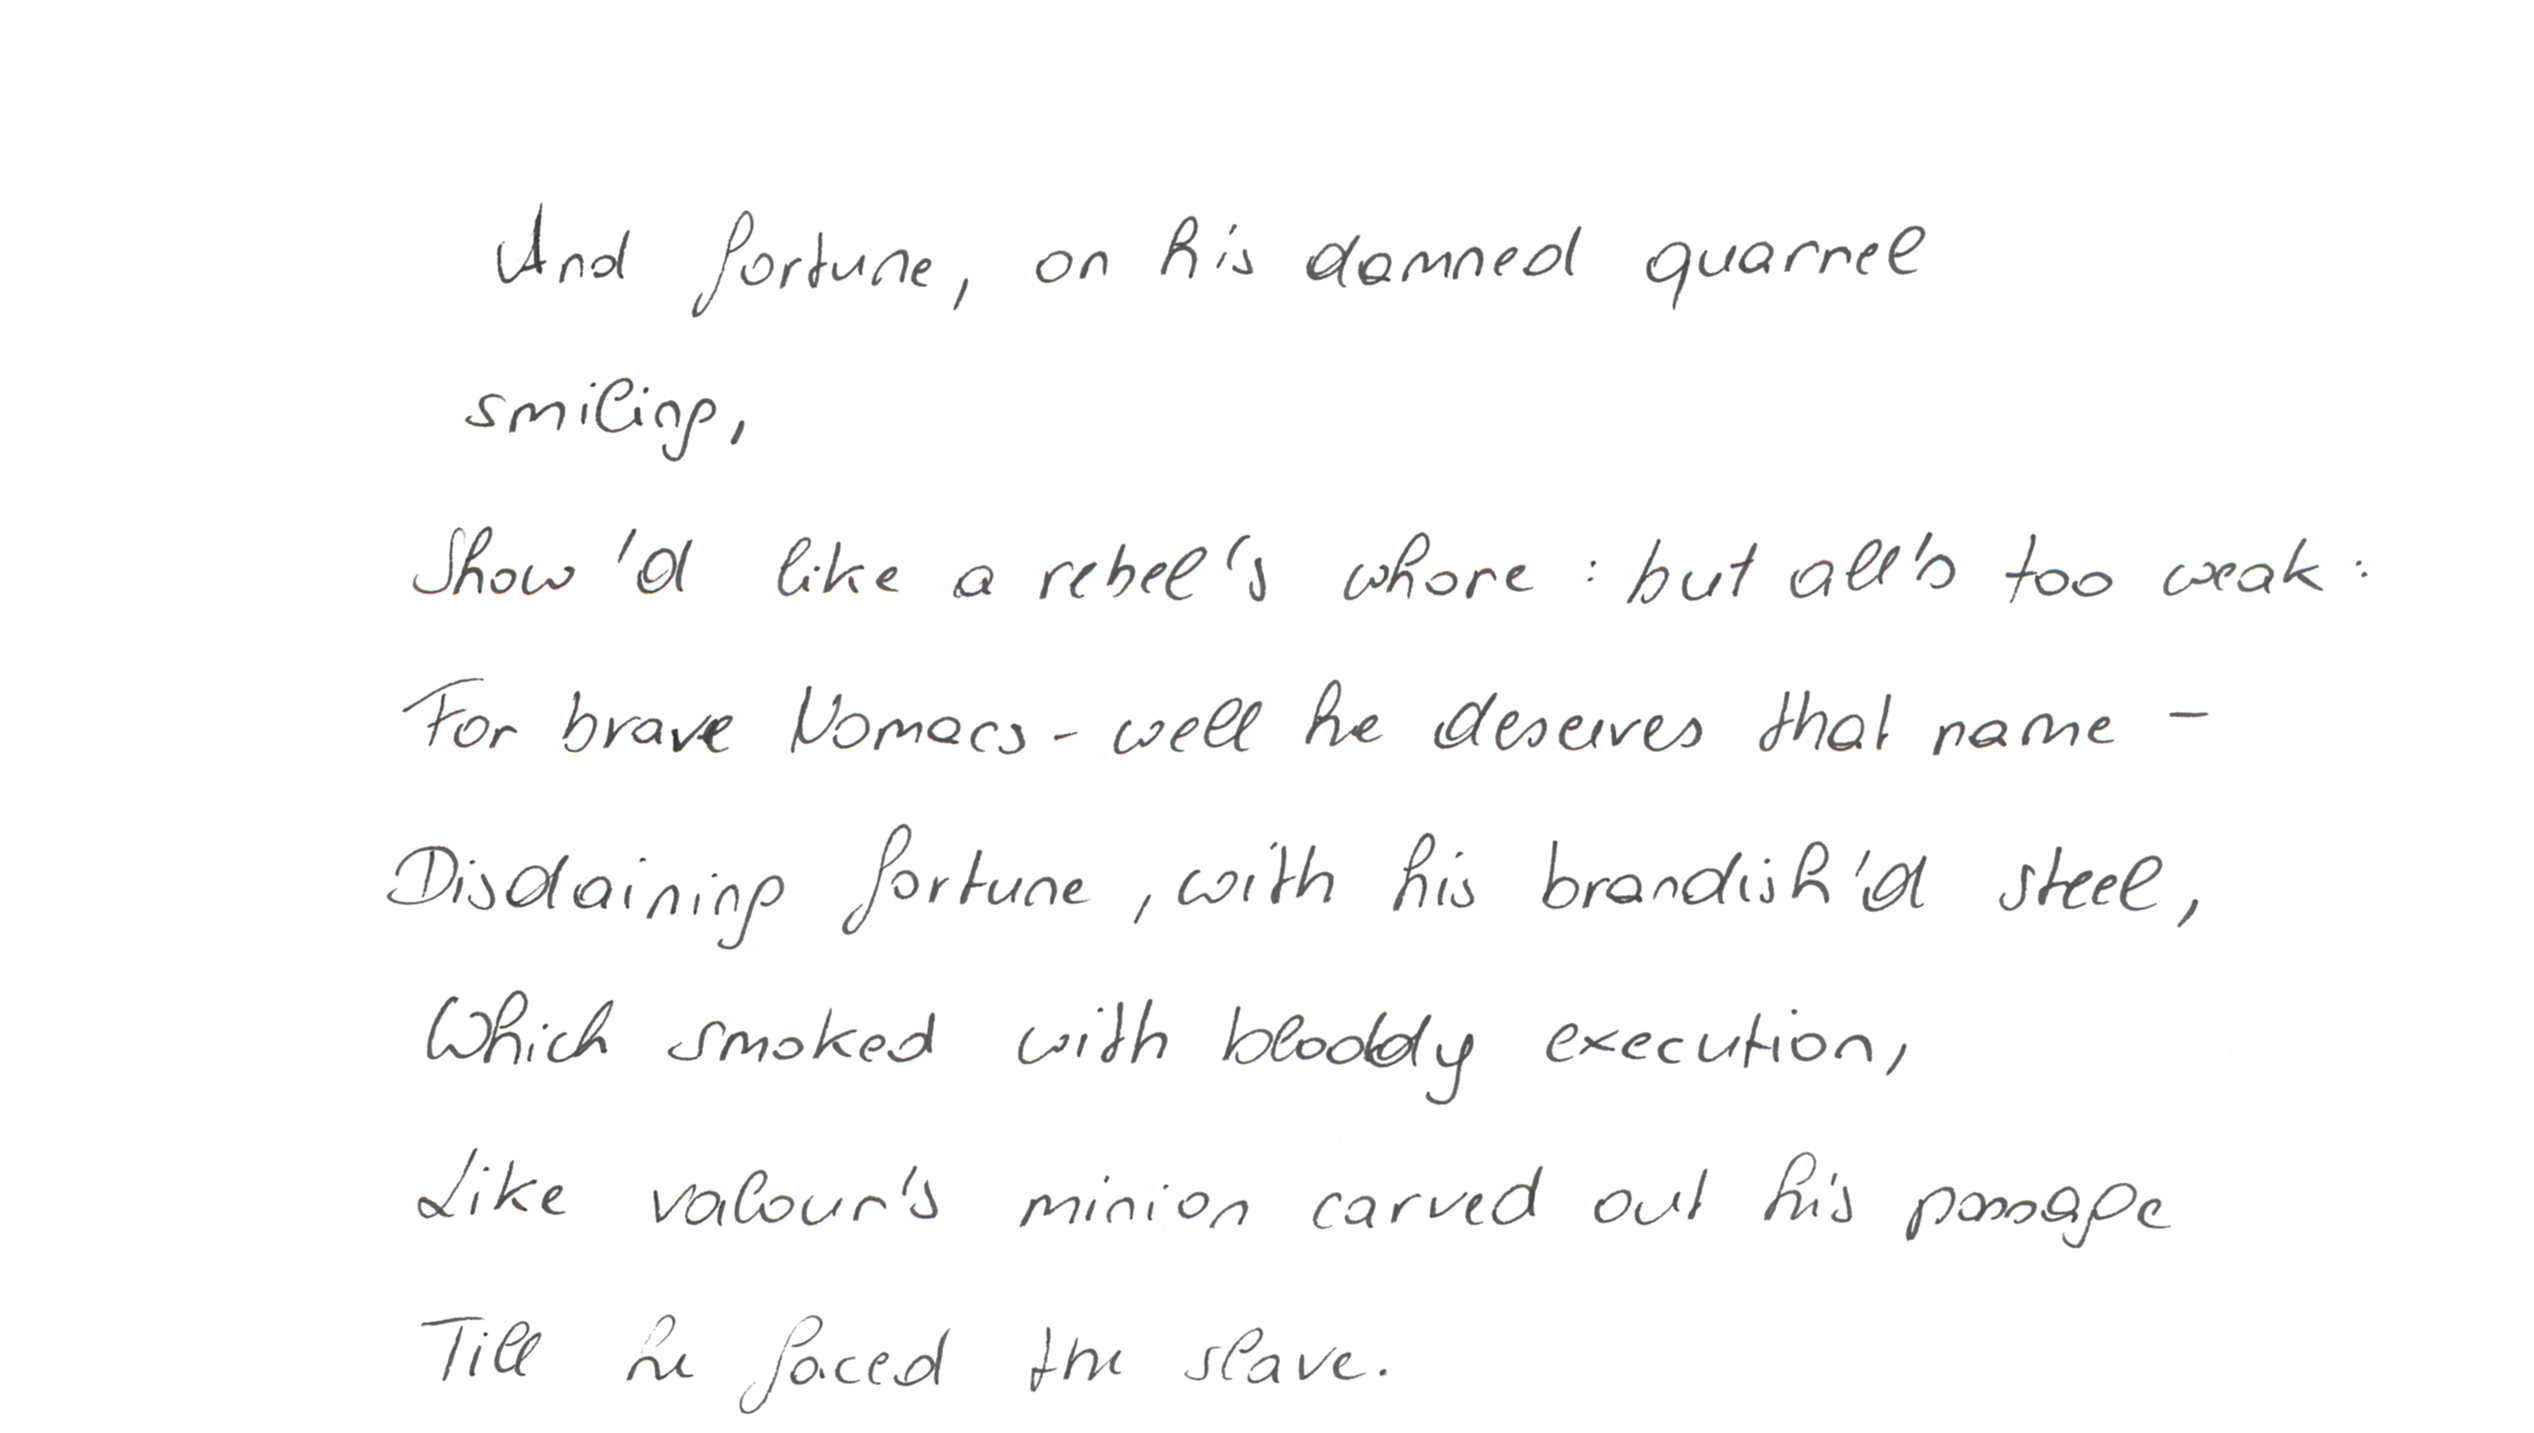 And fortune, on his damned quarrel
smiling,
Show'd like a rebel's whore : but all's too weak :
For brave Nomacs - well he deserves that name -
Disdaining fortune, with his brandish'd steel,
Which smoked with bloody execution,
Like valour's minion carved out his passage
Till he faced the slave.